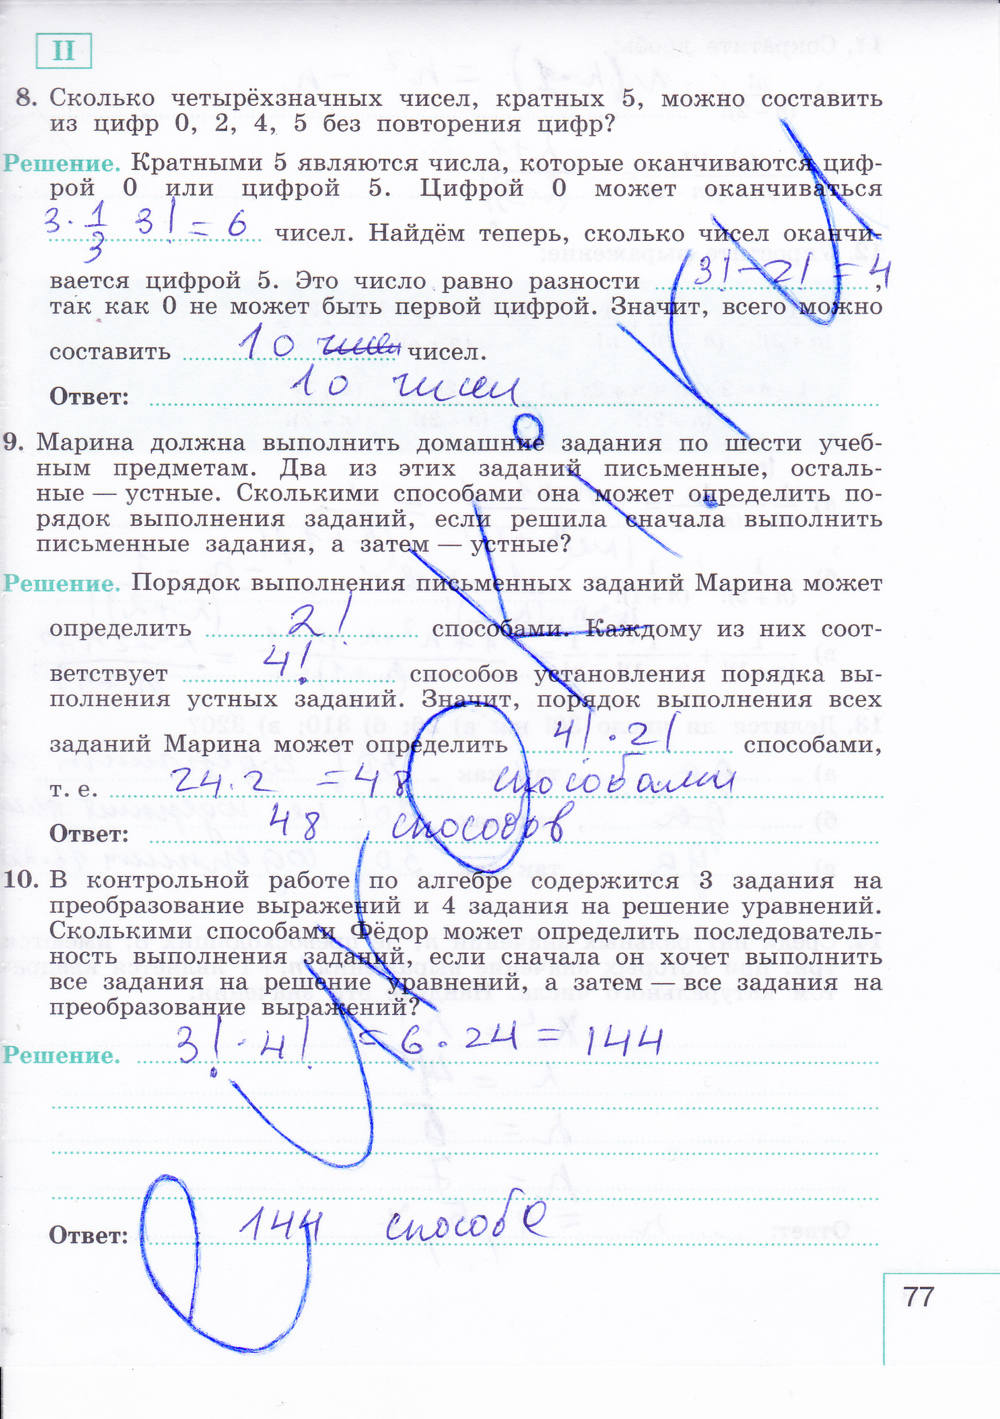 II
8. Сколько четырёхзначных чисел, кратных 5, можно составить
из цифр 0, 2, 4, 5 без повторения цифр?
Решение. Кратными 5 являются числа, которые оканчиваются циф-
рой 0 или цифрой 5. Цифрой 0 может оканчиваться
3 · 1/3 3! = 6 чисел. Найдём теперь, сколько чисел оканчи-
вается цифрой 5. Это число равно разности 3! - 2! = 4,
так как 0 не может быть первой цифрой. Значит, всего можно
составить 10 чисел.
Ответ: 10 чисел
9. Марина должна выполнить домашние задания по шести учеб-
ным предметам. Два из этих заданий письменные, осталь-
ные — устные. Сколькими способами она может определить по-
рядок выполнения заданий, если решила сначала выполнить
письменные задания, а затем — устные?
Решение. Порядок выполнения письменных заданий Марина может
определить 2! способами. Каждому из них соот-
ветствует 4! способов установления порядка вы-
полнения устных заданий. Значит, порядок выполнения всех
заданий Марина может определить 4! · 2! способами,
т. е. 24 · 2 = 48 способами
Ответ: 48 способов
10. В контрольной работе по алгебре содержится 3 задания на
преобразование выражений и 4 задания на решение уравнений.
Сколькими способами Фёдор может определить последователь-
ность выполнения заданий, если сначала он хочет выполнить
все задания на решение уравнений, а затем — все задания на
преобразование выражений?
Решение. 3! · 4! = 6 · 24 = 144
Ответ: 144 способа
77